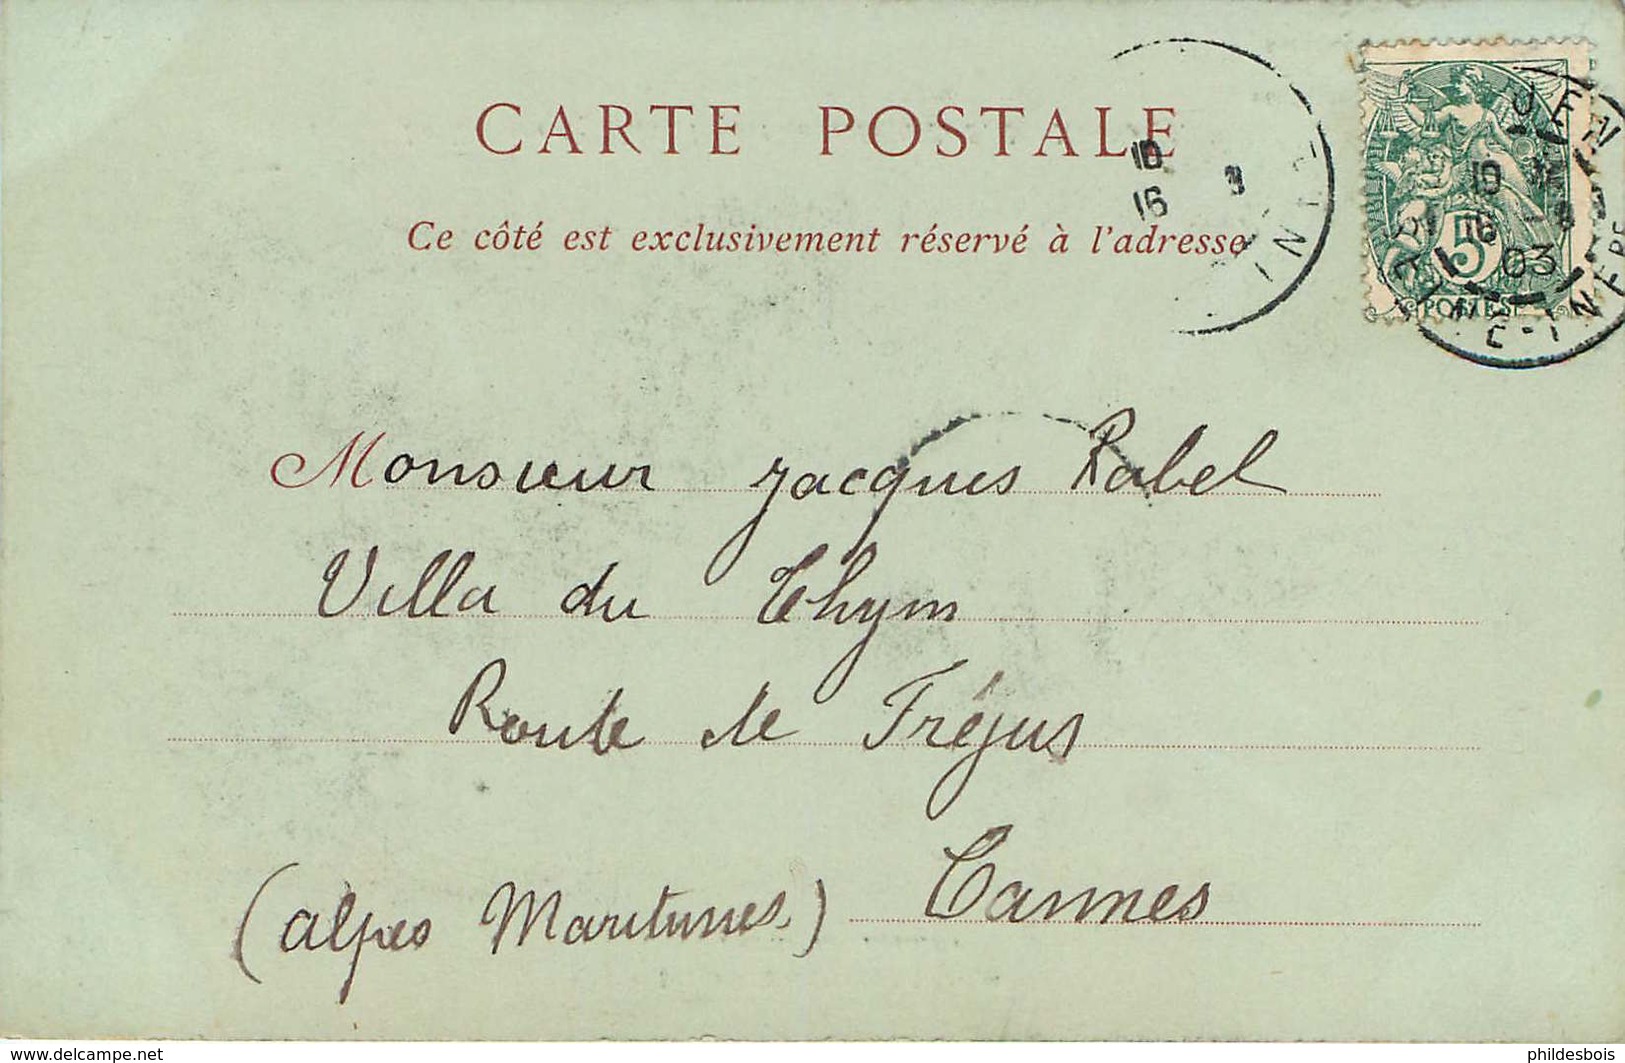 CARTE POSTALE
Ce côté est exclusivement réservé à l'adresse
10
16
5
10
16
03
POSTES
ROUEN
SEINE-INFRE
Monsieur Jacques Rabel
Villa du Thym
Route de Fréjus
Cannes
(Alpes Maritimes)
www.delcampe.net
phildesbois